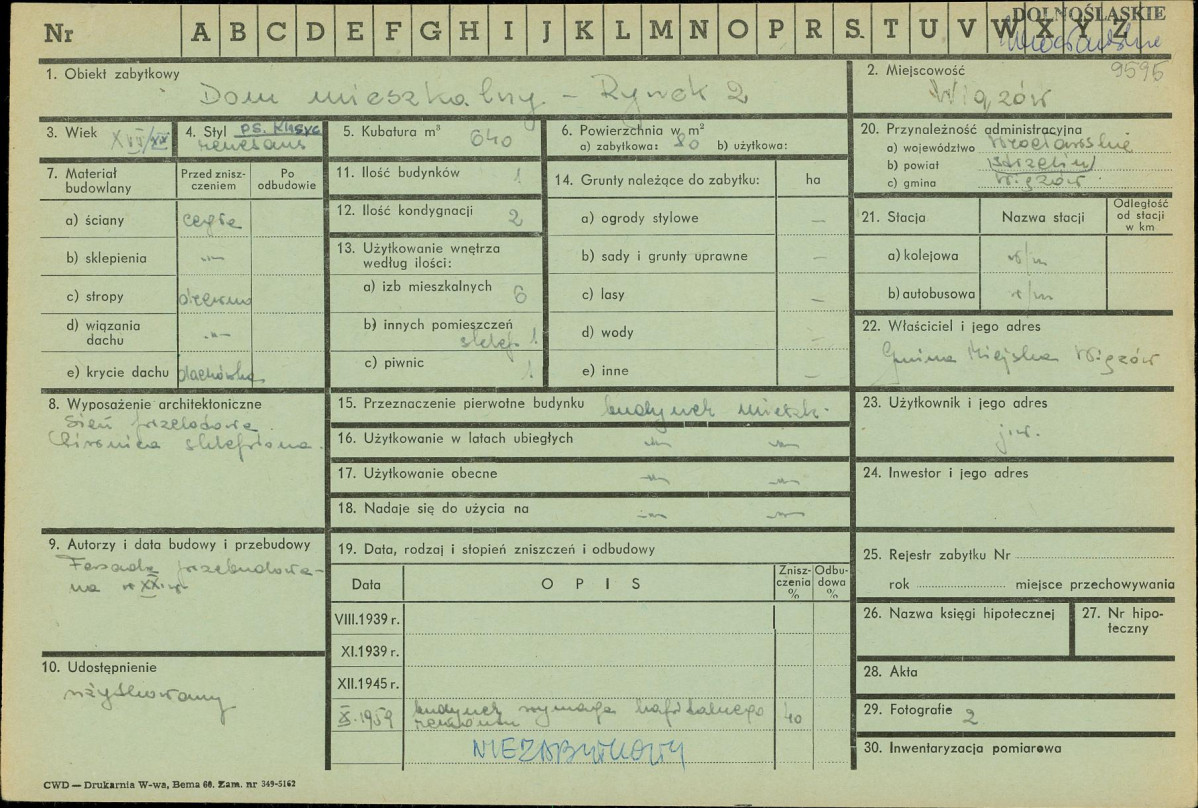 Nr
A B C D E F G H I J K L M N O P R S T U V W X Y Z
DOLNOŚLĄSKIE
9595
1. Obiekt zabytkowy
Dom mieszkalny – Rynek 2
2. Miejscowość
Wiązów
3. Wiek XVII/XX
4. Styl ps. klasyc
renesans
5. Kubatura m³ 640
6. Powierzchnia w m²
a) zabytkowa: 80 b) użytkowa:
20. Przynależność administracyjna
a) województwo Wrocławskie
b) powiat Strzelin
c) gmina Wiązów
7. Materiał budowlany
Przed zniszczeniem
Po odbudowie
a) ściany cegła
b) sklepienia -„-
c) stropy drewno
d) wiązania dachu -„-
e) krycie dachu dachówka
11. Ilość budynków 1
12. Ilość kondygnacji 2
13. Użytkowanie wnętrza
według ilości:
a) izb mieszkalnych 6
b) innych pomieszczeń
sklep. 1
c) piwnic 1
14. Grunty należące do zabytku: ha
a) ogrody stylowe –
b) sady i grunty uprawne –
c) lasy –
d) wody –
e) inne –
21. Stacja
Nazwa stacji
Odległość
od stacji
w km
a) kolejowa w/m
b) autobusowa w/m
22. Właściciel i jego adres
Gmina Miejska Wiązów
8. Wyposażenie architektoniczne
Sień przelotowa.
Piwnica sklepiona.
15. Przeznaczenie pierwotne budynku budynek mieszk.
16. Użytkowanie w latach ubiegłych -„- -„-
17. Użytkowanie obecne -„- -„-
18. Nadaje się do użycia na -„- -„-
23. Użytkownik i jego adres
jw.
24. Inwestor i jego adres
9. Autorzy i data budowy i przebudowy
Fasada przebudowa-
na w XX w.
10. Udostępnienie
użytkowany
19. Data, rodzaj i stopień zniszczeń i odbudowy
Data
OPIS
Znisz-
czenia
%
Odbu-
dowa
%
VIII.1939 r.
XI.1939 r.
XII.1945 r.
X.1959 budynek wymaga kapitalnego 40
remontu
NIEZABYTKOWY
25. Rejestr zabytku Nr
rok miejsce przechowywania
26. Nazwa księgi hipotecznej
27. Nr hipo-
teczny
28. Akta
29. Fotografie 2
30. Inwentaryzacja pomiarowa
CWD — Drukarnia W-wa, Bema 60. Zam. nr 349-5162